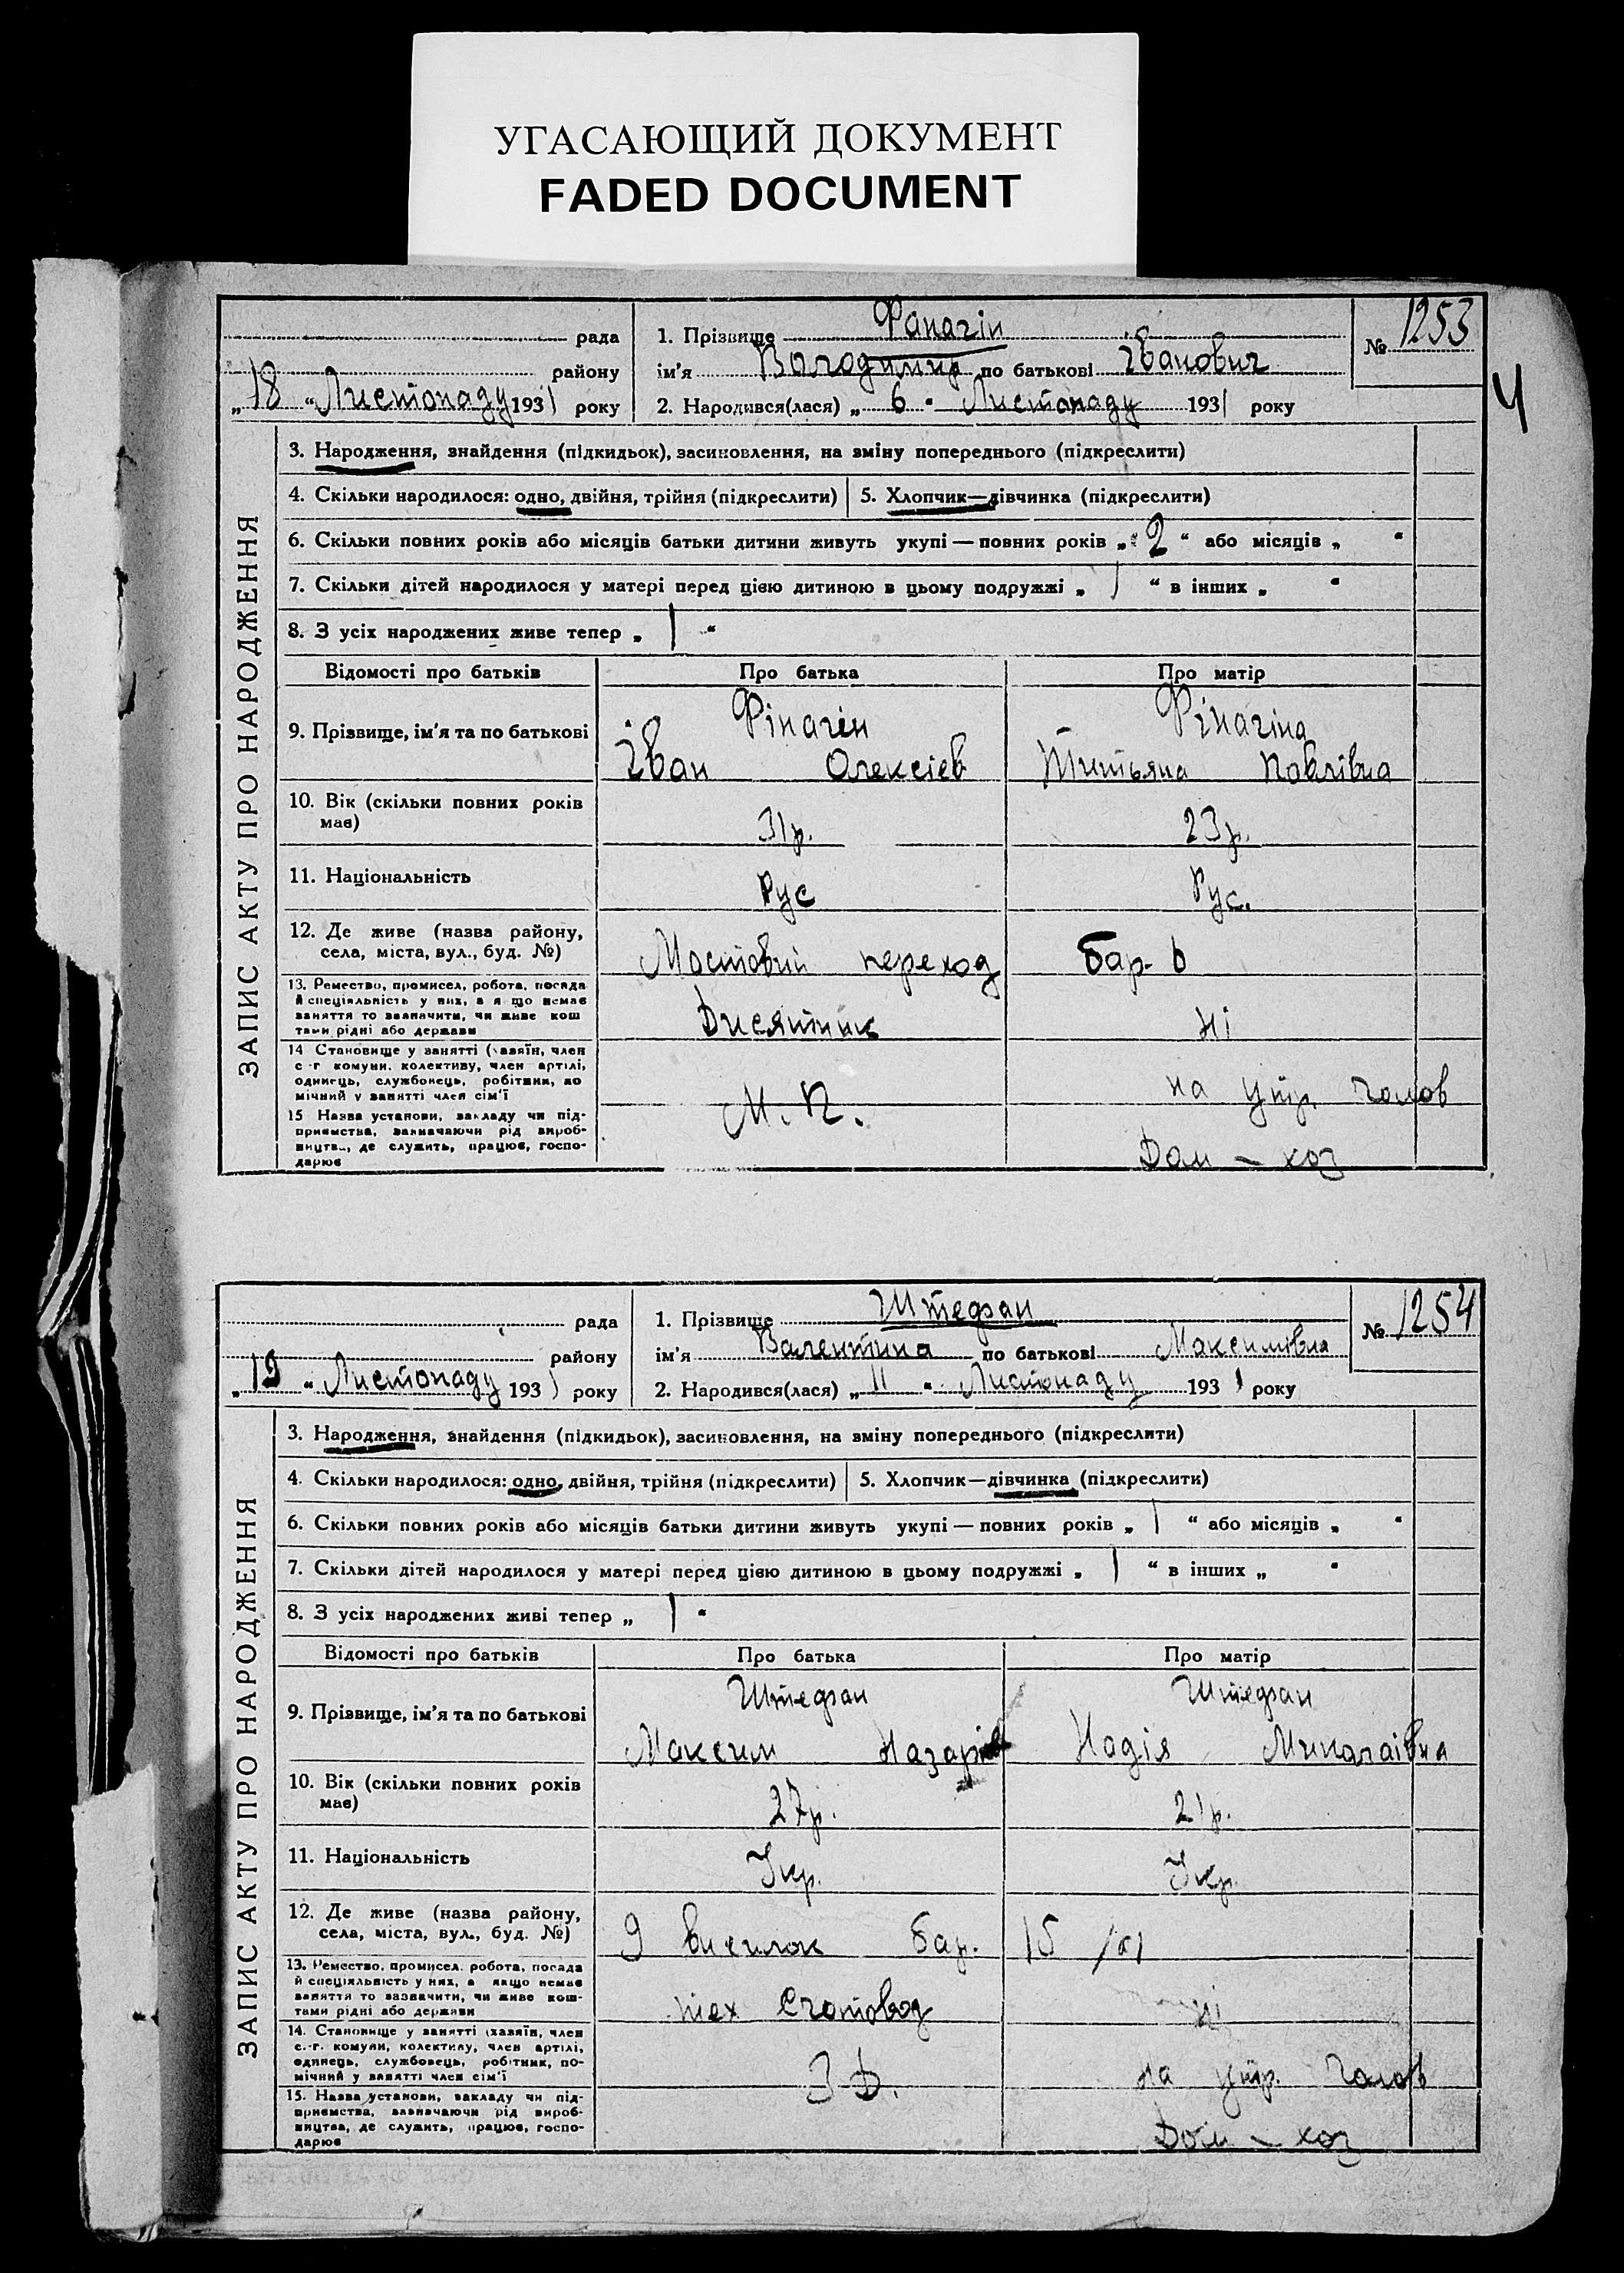 УГАСАЮЩИЙ ДОКУМЕНТ
FADED DOCUMENT
ЗАПИС АКТУ ПРО НАРОДЖЕННЯ
рада
району
„18“ Листопаду 1931 року
1. Прізвище Фанагін
ім'я Володимир по батькові Іванович
2. Народився(лася) „6“ Листопаду 1931 року
№ 1253
4
3. Народження, знайдення (підкидьок), засиновлення, на зміну попереднього (підкреслити)
4. Скільки народилося: одно, двійня, трійня (підкреслити) 5. Хлопчик—дівчинка (підкреслити)
6. Скільки повних років або місяців батьки дитини живуть укупі — повних років „2“ або місяців „ “
7. Скільки дітей народилося у матері перед цією дитиною в цьому подружжі „1“ в інших „ “
8. З усіх народжених живе тепер „1“
Відомості про батьків Про батька Про матір
9. Прізвище, ім'я та по батькові
Фінагін
Іван Олексіев
Фінагіна
Титьяна Павлівна
10. Вік (скільки повних років має)
31р. 23р.
11. Національність
Рус Рус.
12. Де живе (назва району,
села, міста, вул., буд. №)
Мостовий переход бар-
13. Ремество, промисел, робота, посада
й спеціяльність у них, а якщо немає
заняття то зазначити, чи живе кош
тами рідні або держави
Дисятник ні
14 Становище у занятті (хазяїн, член
с-г комуни, колективу, член артілі,
одинець, службовець, робітник, по
мічний у занятті член сім'ї
М. П. на утр. голов
15 Назва установи, закладу чи під-
приємства, зазначаючи рід вироб-
ництва, де служить, працює, госпо-
дарює
Дом – хоз
ЗАПИС АКТУ ПРО НАРОДЖЕННЯ
рада
району
„19“ Листопаду 1931 року
1. Прізвище Штефан
ім'я Валентина по батькові Максимівна
2. Народився(лася) „11“ Листопаду 1931 року
№ 1254
3. Народження, знайдення (підкидьок), засиновлення, на зміну попереднього (підкреслити)
4. Скільки народилося: одно, двійня, трійня (підкреслити) 5. Хлопчик—дівчинка (підкреслити)
6. Скільки повних років або місяців батьки дитини живуть укупі — повних років „1“ або місяців „ “
7. Скільки дітей народилося у матері перед цією дитиною в цьому подружжі „1“ в інших „ “
8. З усіх народжених живі тепер „1“
Відомості про батьків Про батька Про матір
9. Прізвище, ім'я та по батькові
Штефан
Максим
Штефан
Надія Миколаівна
10. Вік (скільки повних років має)
27р. 21р.
11. Національність
Укр. Укр.
12. Де живе (назва району,
села, міста, вул., буд. №)
9 висилок бар. 15
13. Ремество, промисел, робота, посада
й спеціяльність у них, а якщо немає
заняття то зазначити, чи живе кош-
тами рідні або держави
тех ні
14. Становище у занятті (хазяїн, член
с.-г. комуни, колективу, член артілі,
одинець, службовець, робітник, по-
мічний у занятті член сім'ї
З Д. на утр. голов
15. Назва установи, закладу чи під-
приємства, зазначаючи рід вироб-
ництва, де служить, працює, госпо-
дарює
Дом – хоз